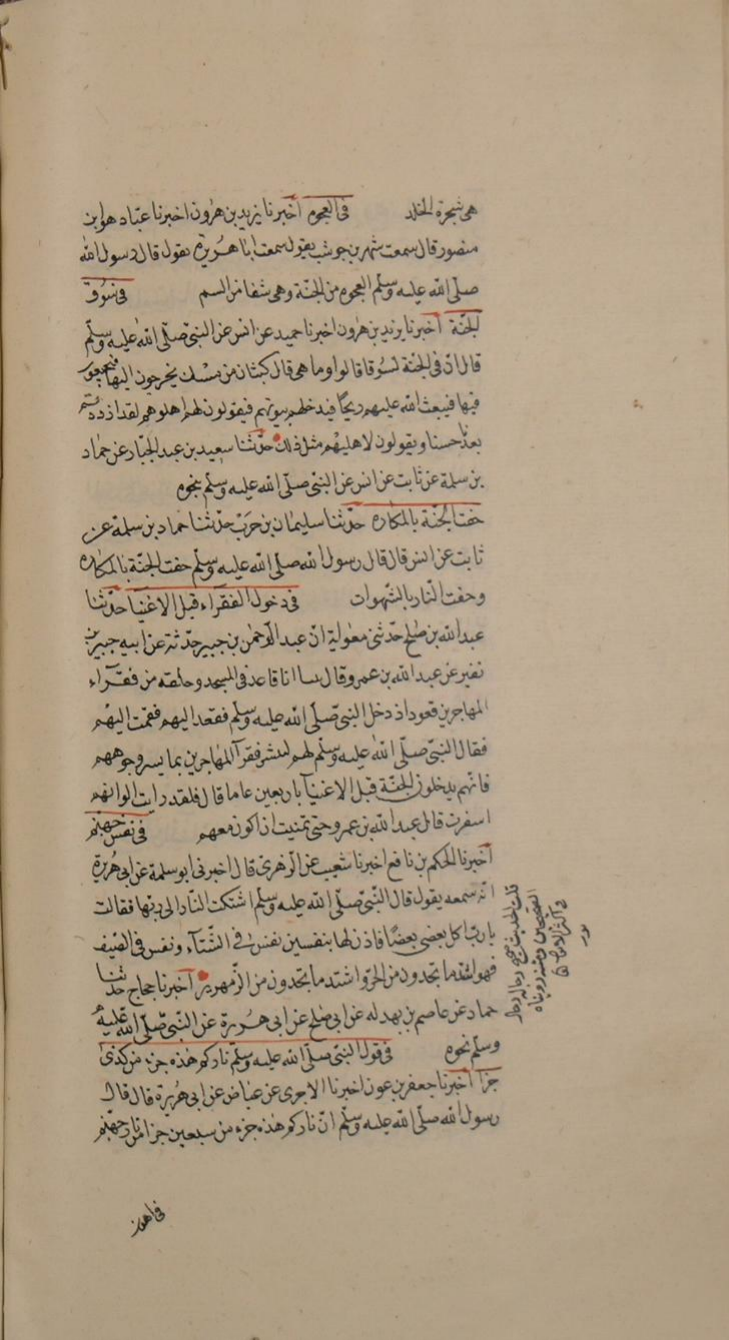 هى شجرة الخلد في العجوه أخبرنا يزيد بن هرون اخبرنا عباد هو ابن
منصور قال سمعت شهر بن حوشب يقول سمعت ابا هريرة يقول قال رسول الله
صلى الله عليه وسلم العجوه من الجنة وهى شفا من السم في سوق
الجنة أخبرنا يزيد بن هرون اخبرنا حميد عن انس عن النبي صلى الله عليه وسلم
قال ان فى الجنة لسوقا قالوا وما هى قال كثبان من مسك يخرجون اليها فيجتمعون
فيها فيبعث الله عليهم ريحا فيدخلهم بيوتهم فيقولون لهم اهلوهم لقد ازددتم
بعدنا حسنا ويقولون لاهليهم مثل ذلك حدثنا سعيد بن عبد الجبار عن حماد
بن سلمة عن ثابت عن انس عن النبي صلى الله عليه وسلم بنحوه
حفت الجنة بالمكاره حدثنا سليمان بن حرب حدثنا حماد بن سلمة عن
ثابت عن انس قال قال رسول الله صلى الله عليه وسلم حفت الجنة بالمكاره
وحفت النار بالشهوات في دخول الفقراء قبل الاغنيا حدثنا
عبد الله بن صلح حدثنى معوية ان عبد الرحمن بن جبير حدثه عن ابيه جبير بن
نفير عن عبد الله بن عمرو قال بينا انا قاعد فى المسجد وحلقه من فقرآء
المهاجرين قعود اذ دخل النبي صلى الله عليه وسلم فقعد اليهم فقمت اليهم
فقال النبي صلى الله عليه وسلم لهم ليبشر فقرآ المهاجرين بما يسر وجوههم
فانهم يدخلون الجنة قبل الاغنيآ باربعين عاما قال فلقد رايت الوانهم
اسفرت قال عبد الله بن عمرو حتى تمنيت ان اكون معهم في نفس جهنم
أخبرنا الحكم بن نافع اخبرنا شعيب عن الزهرى قال اخبرنى ابو سلمة عن ابى هريرة
انه سمعه يقول قال النبي صلى الله عليه وسلم اشتكت النار الى ربها فقالت
يا رب اكل بعضى بعضا فاذن لها بنفسين نفس فى الشتآء ونفس فى الصيف
فهو اشد ما تجدون من الحر واشد ما تجدون من الزمهرير أخبرنا حجاج حدثنا
حماد عن عاصم بن بهدله عن ابى صلح عن ابى هريرة عن النبي صلى الله عليه
وسلم نحوه في قول النبي صلى الله عليه وسلم ناركم هذه جزء من كذى
جزأ أخبرنا جعفر بن عون اخبرنا الاجرى عن عياض عن ابى هريرة قال قال
رسول الله صلى الله عليه وسلم ان ناركم هذه جزء من سبعين جزا من نار جهنم
قلت الحديث
في اهون